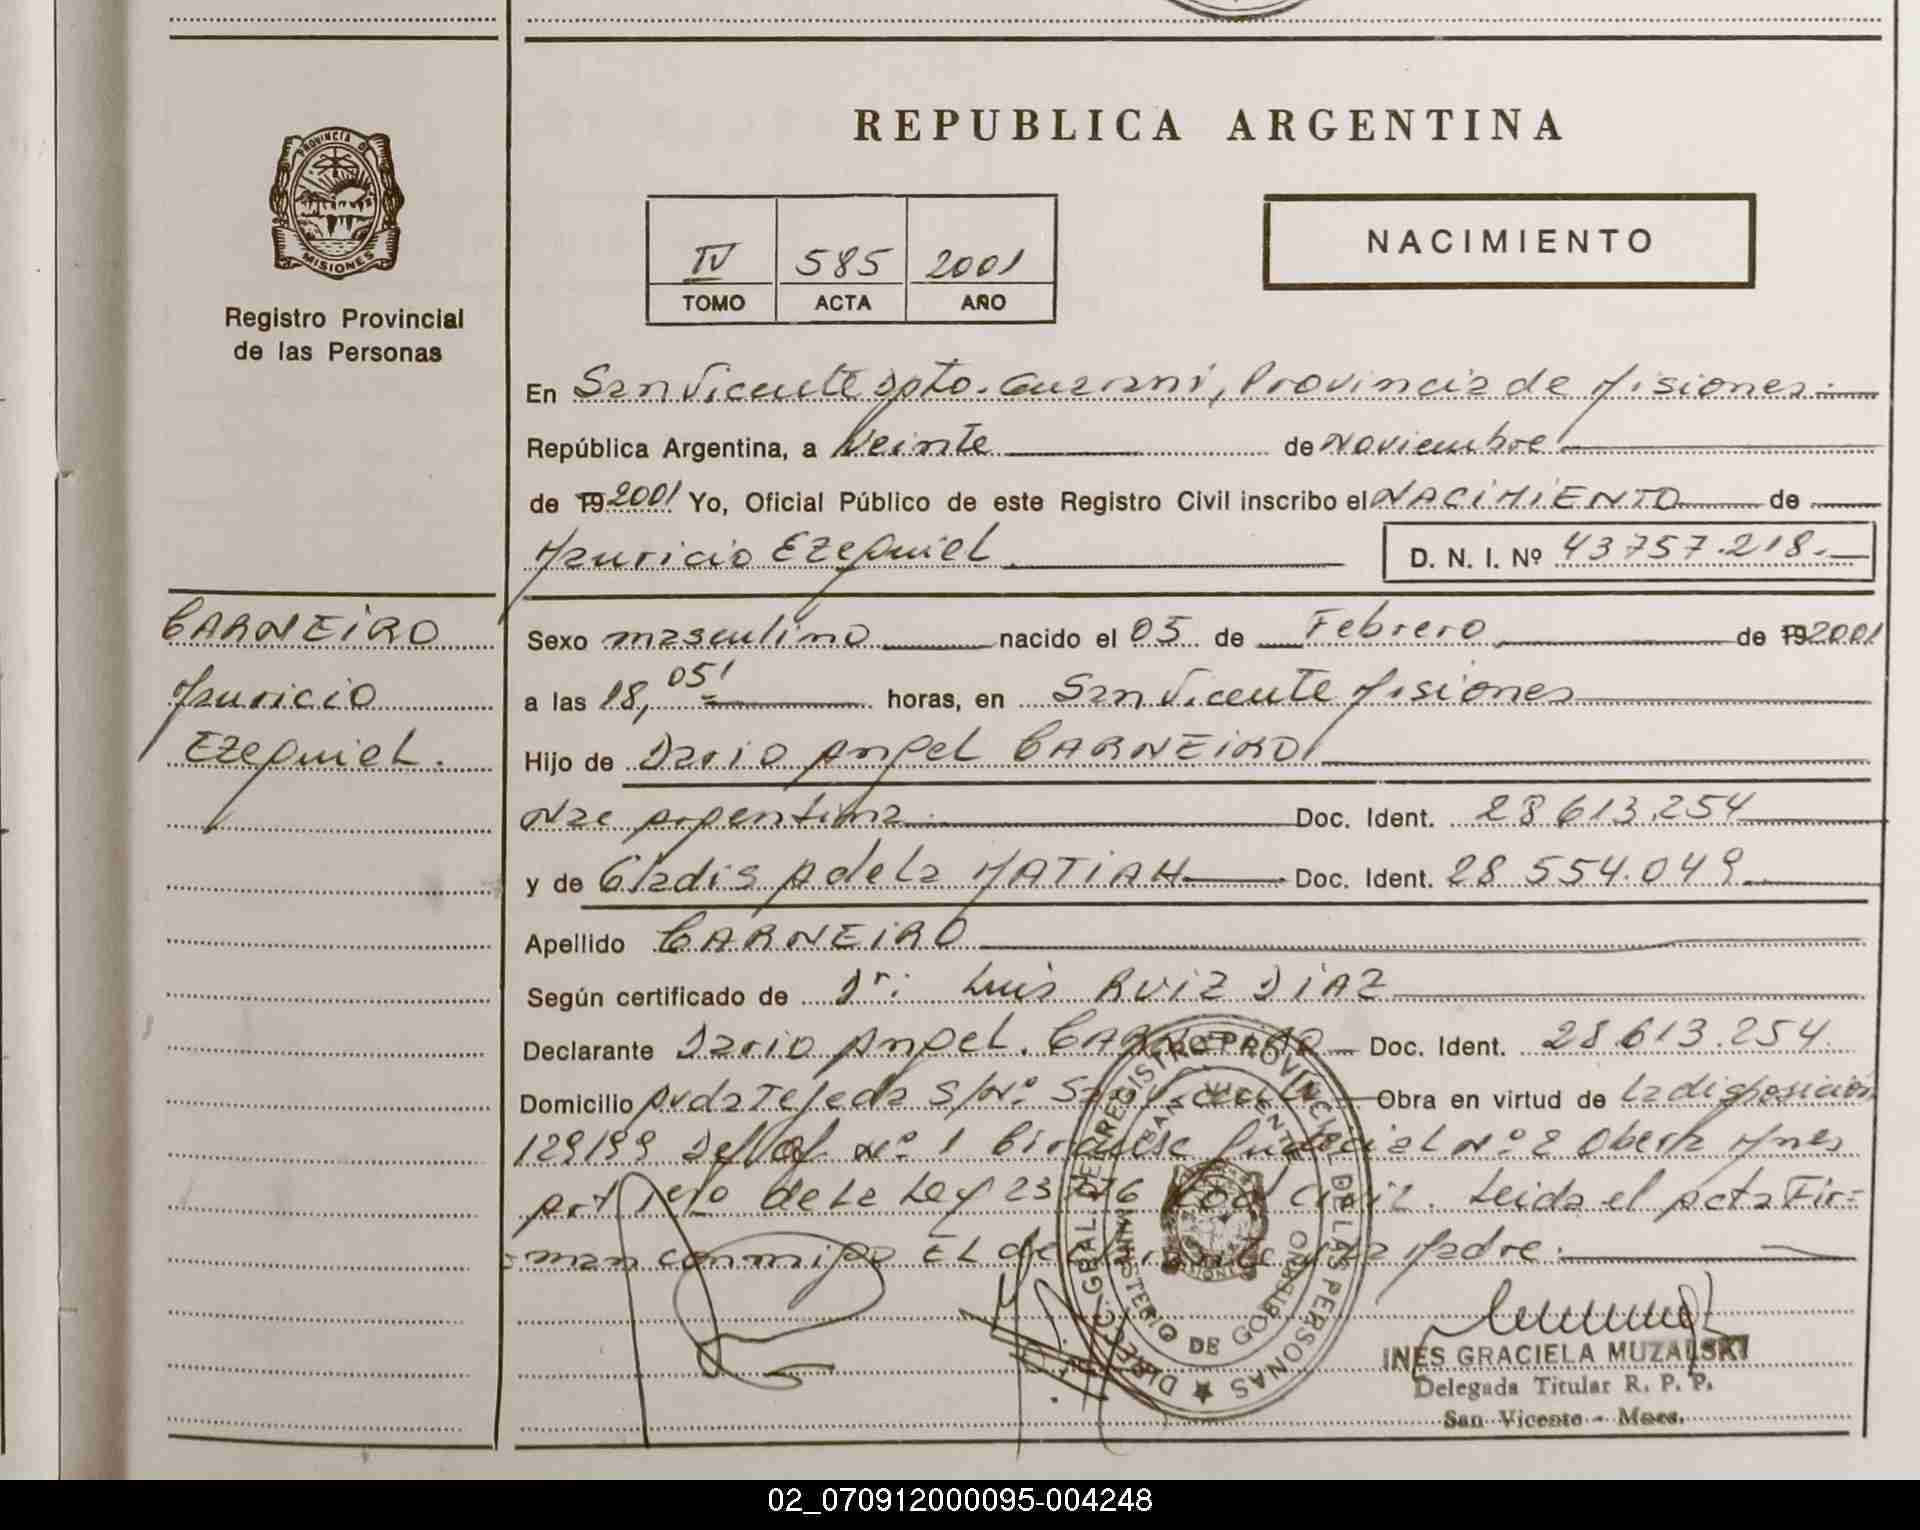 PROVINCIA DE
MISIONES
Registro Provincial
de las Personas
CARNEIRO
Mauricio
Ezequiel.
REPUBLICA ARGENTINA
IV 585 2001
TOMO ACTA AÑO
NACIMIENTO
En San Vicente Dpto. Guarani, Provincia de Misiones.
República Argentina, a Veinte de Noviembre
de 19 2001 Yo, Oficial Público de este Registro Civil inscribo el NACIMIENTO de
Mauricio Ezequiel D. N. I. Nº 43757.218.
Sexo masculino nacido el 05 de Febrero de 19 2001
a las 18, 05' horas, en San Vicente Misiones
Hijo de Dario Angel CARNEIRO
Nac argentina Doc. Ident. 28 613.254
y de Gladis Adela MATIAH Doc. Ident. 28 554.049
Apellido CARNEIRO
Según certificado de Dr: Luis RUIZ DIAZ
Declarante Dario Angel. CARNEIRO Doc. Ident. 28 613.254.
Domicilio Avda Tejeda S/Nº San Vicente Obra en virtud de la disposición
129/99 Def Of. Nº 1 Circunsc Judicial Nº 2 Obera Mnes
Art 1ero de la Ley 23 Cod Civil. Leida el acta Fir=
=man conmigo EL declarante y la Madre.
DIREC. GRAL. DE REGISTRO PROVINCIAL DE LAS PERSONAS
SAN VICENTE
MINISTERIO DE GOBIERNO
MISIONES
INES GRACIELA MUZALSKI
Delegada Titular R. P. P.
San Vicente - Mnes.
02_070912000095-004248